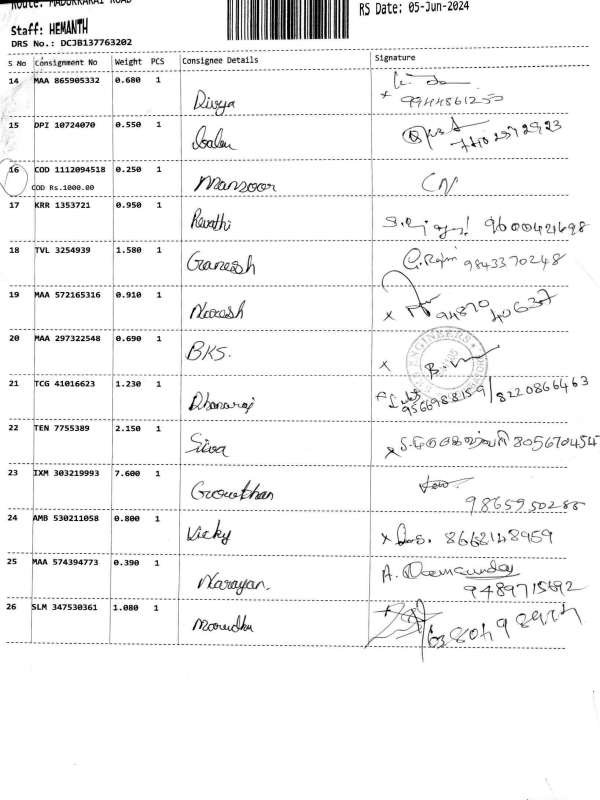 Route: MADUKKARAI ROAD
RS Date: 05-Jun-2024
Staff: HEMANTH
DRS No.: DCJB137763202
S No Consignment No Weight PCS Consignee Details Signature
14 MAA 865905332 0.680 1 Divya
9944861250
15 DPI 10724070 0.550 1
16 COD 1112094518 0.250 1 Mansoor CN
COD Rs.1000.00
17 KRR 1353721 0.950 1 Revathi 9600421698
18 TVL 3254939 1.580 1 Ganessh 9843370248
19 MAA 572165316 0.910 1 94870 40637
20 MAA 297322548 0.690 1 BKS.
ENGINEERS
21 TCG 41016623 1.230 1 Dhanaraj 9566988159/8220866463
22 TEN 7755389 2.150 1 Siva 805670454
23 IXM 303219993 7.600 1 Gowthan
9865950288
24 AMB 530211058 0.800 1 Vicky 8668148959
25 MAA 574394773 0.390 1 Narayan. A.
9489715692
26 SLM 347530361 1.080 1